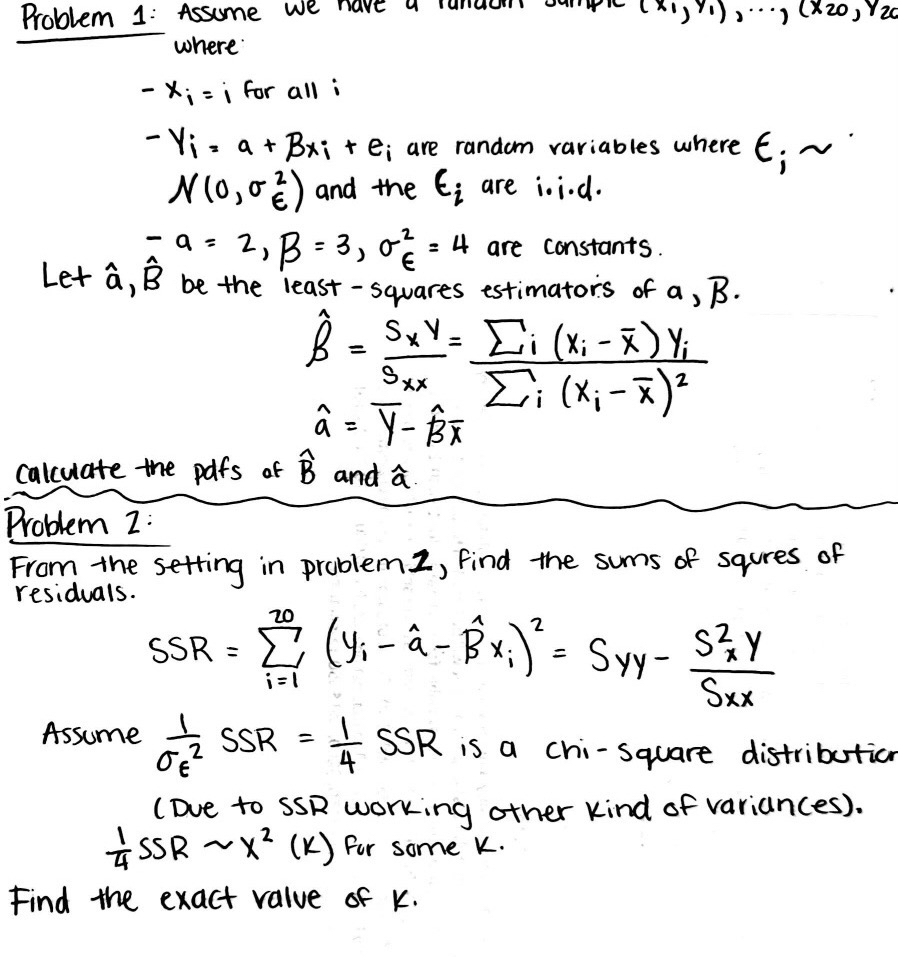 Problem 1: Assume we have a random sample (x₁, Y₁), ..., (x₂₀, Y₂₀
where
- xᵢ = i for all i
- Yᵢ = a + Bxᵢ + eᵢ are random variables where ϵᵢ ~
N(0, σ²_ϵ) and the ϵᵢ are i.i.d.
- a = 2, β = 3, σ²_ϵ = 4 are constants.
Let â, B̂ be the least-squares estimators of a, B.
β̂ = SₓY / Sₓₓ = ∑ᵢ (xᵢ - x̄) Yᵢ / ∑ᵢ (xᵢ - x̄)²
â = Ȳ - B̂x̄
Calculate the pdfs of B̂ and â.
Problem 2:
From the setting in problem 1, find the sums of squres of
residuals.
SSR = ∑ᵢ₌₁²⁰ (yᵢ - â - B̂xᵢ)² = Syy - S²ₓY / Sxx
Assume 1/σ_ϵ² SSR = 1/4 SSR is a chi-square distribution
(Due to SSR working other kind of variances).
1/4 SSR ~ X² (K) for some K.
Find the exact value of K.